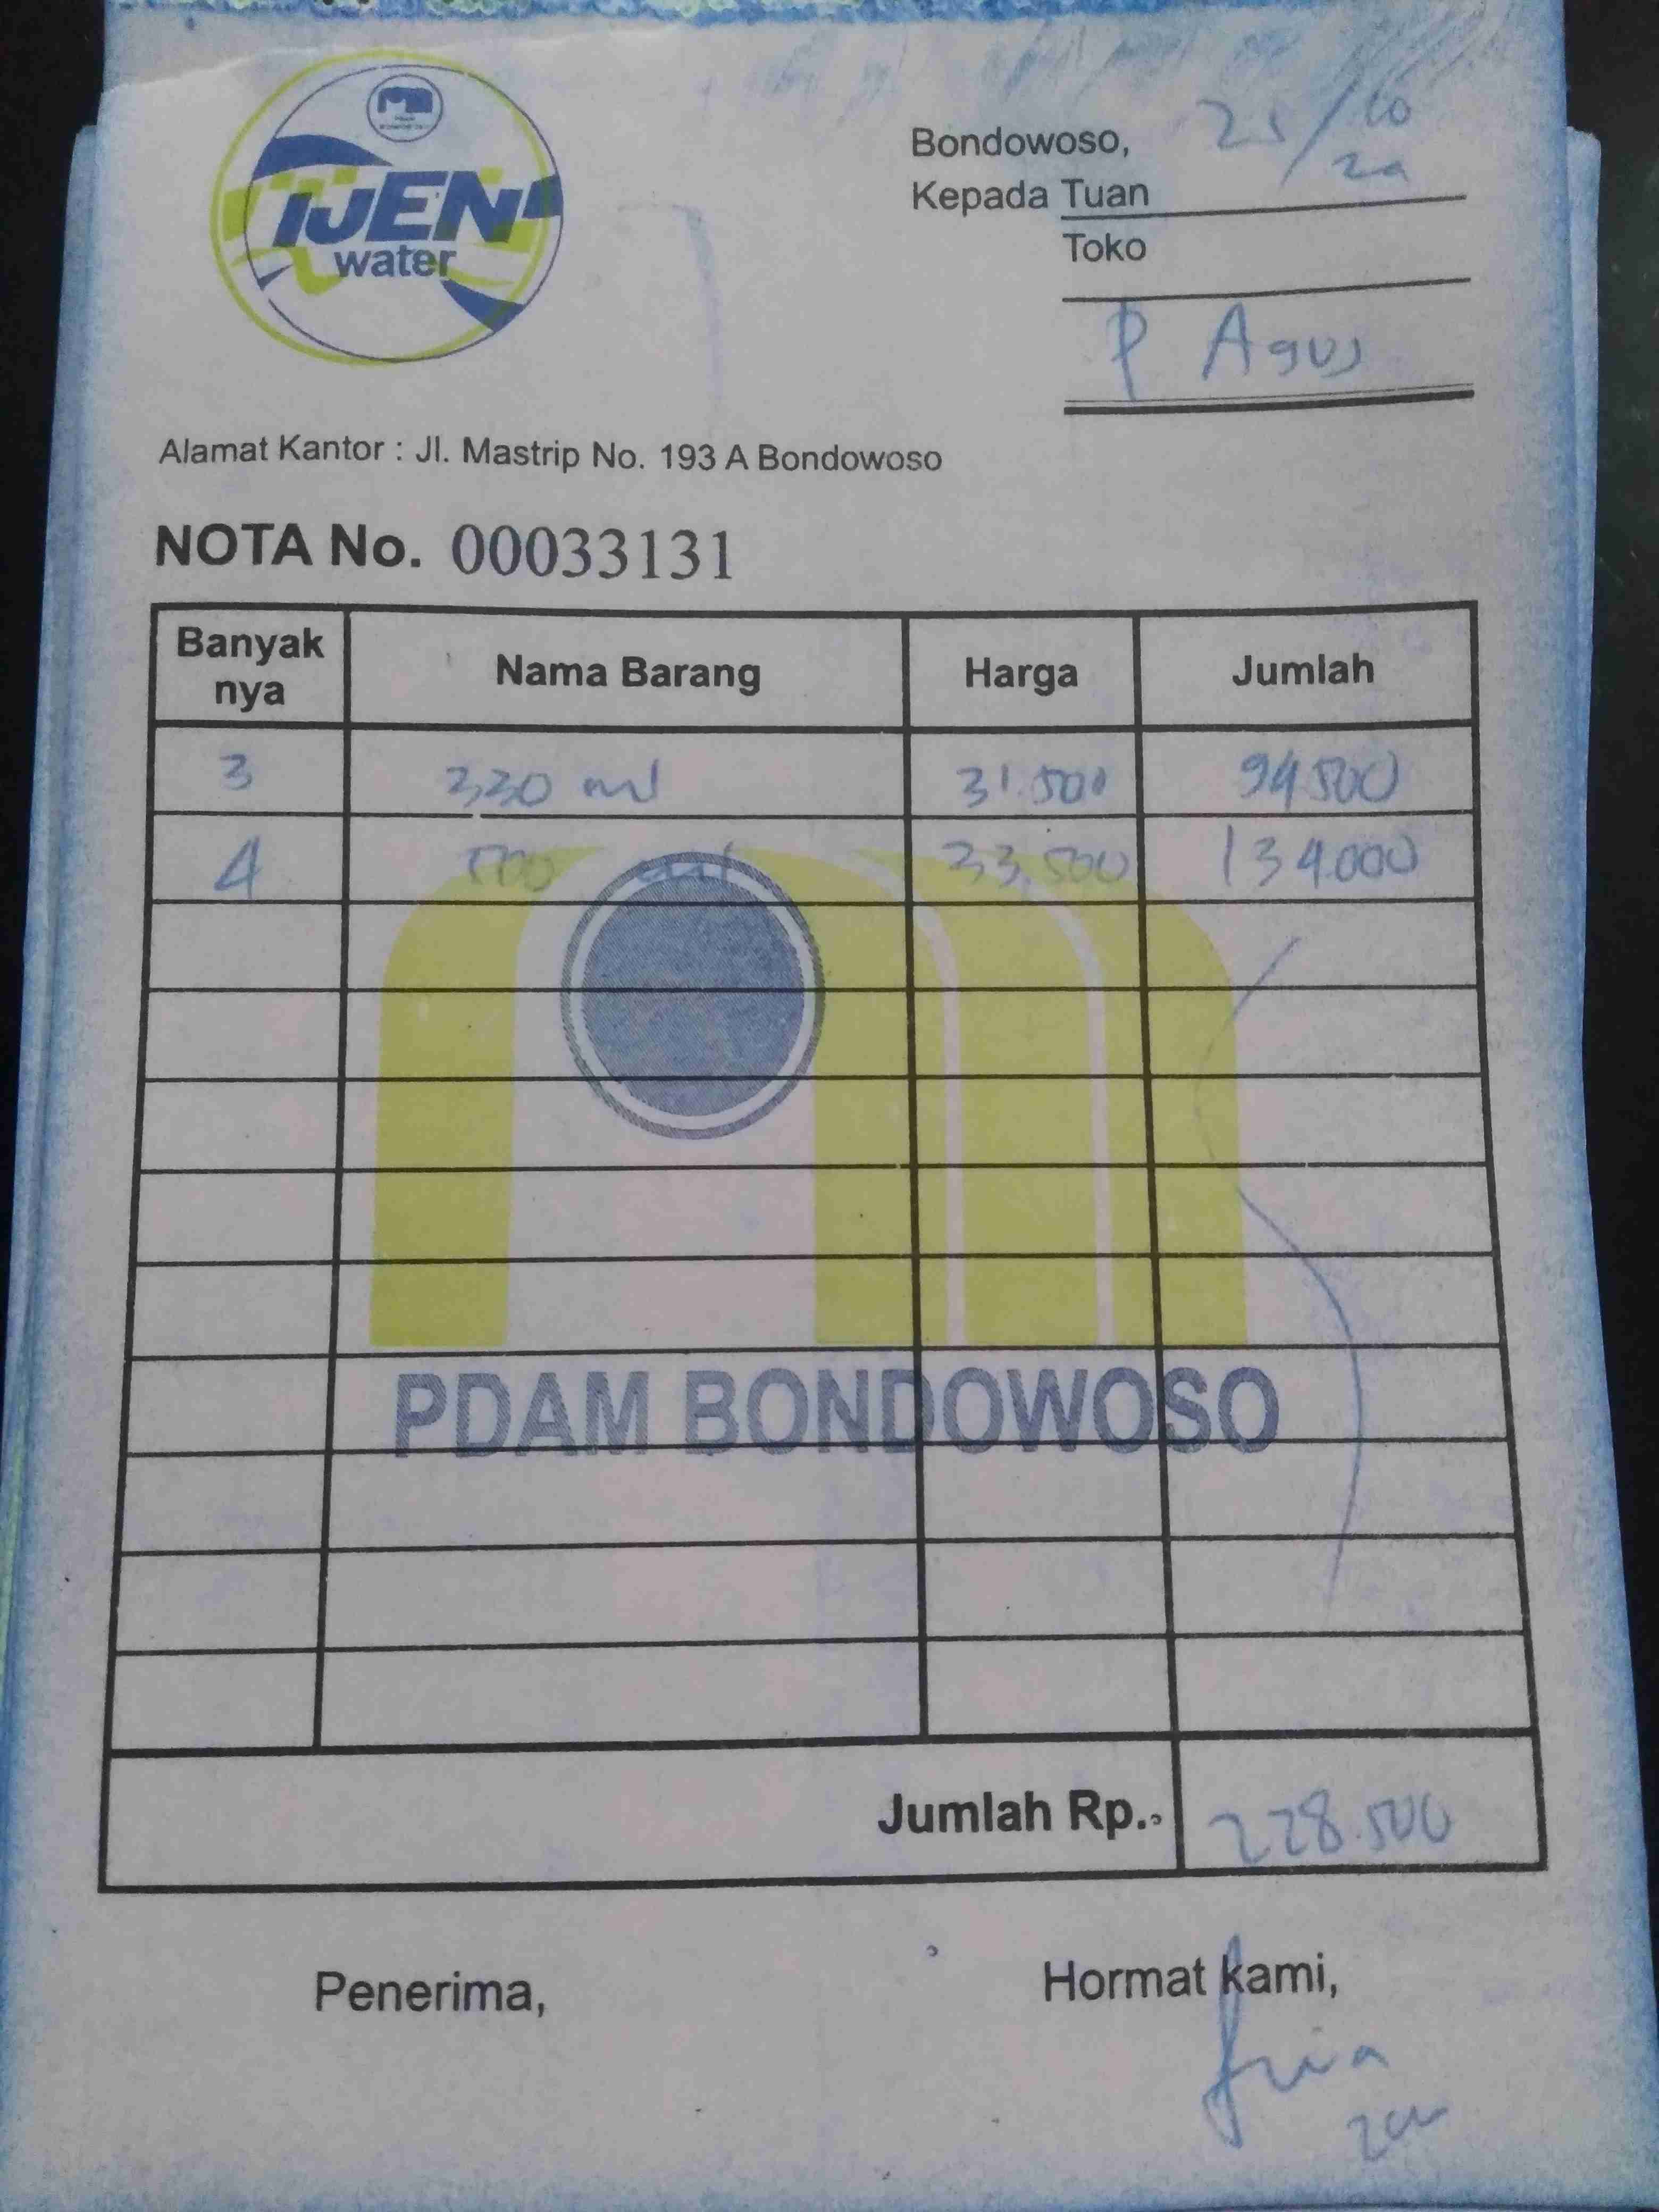 IJEN
water
Bondowoso,
Kepada Tuan
Toko
P Agus
Alamat Kantor : Jl. Mastrip No. 193 A Bondowoso
NOTA No. 00033131
Banyak nya Nama Barang Harga Jumlah
3 330 ml 31.500 94.500
4 500 ml 33.500 134.000
PDAM BONDOWOSO
Jumlah Rp. 228.500
Penerima, Hormat kami,